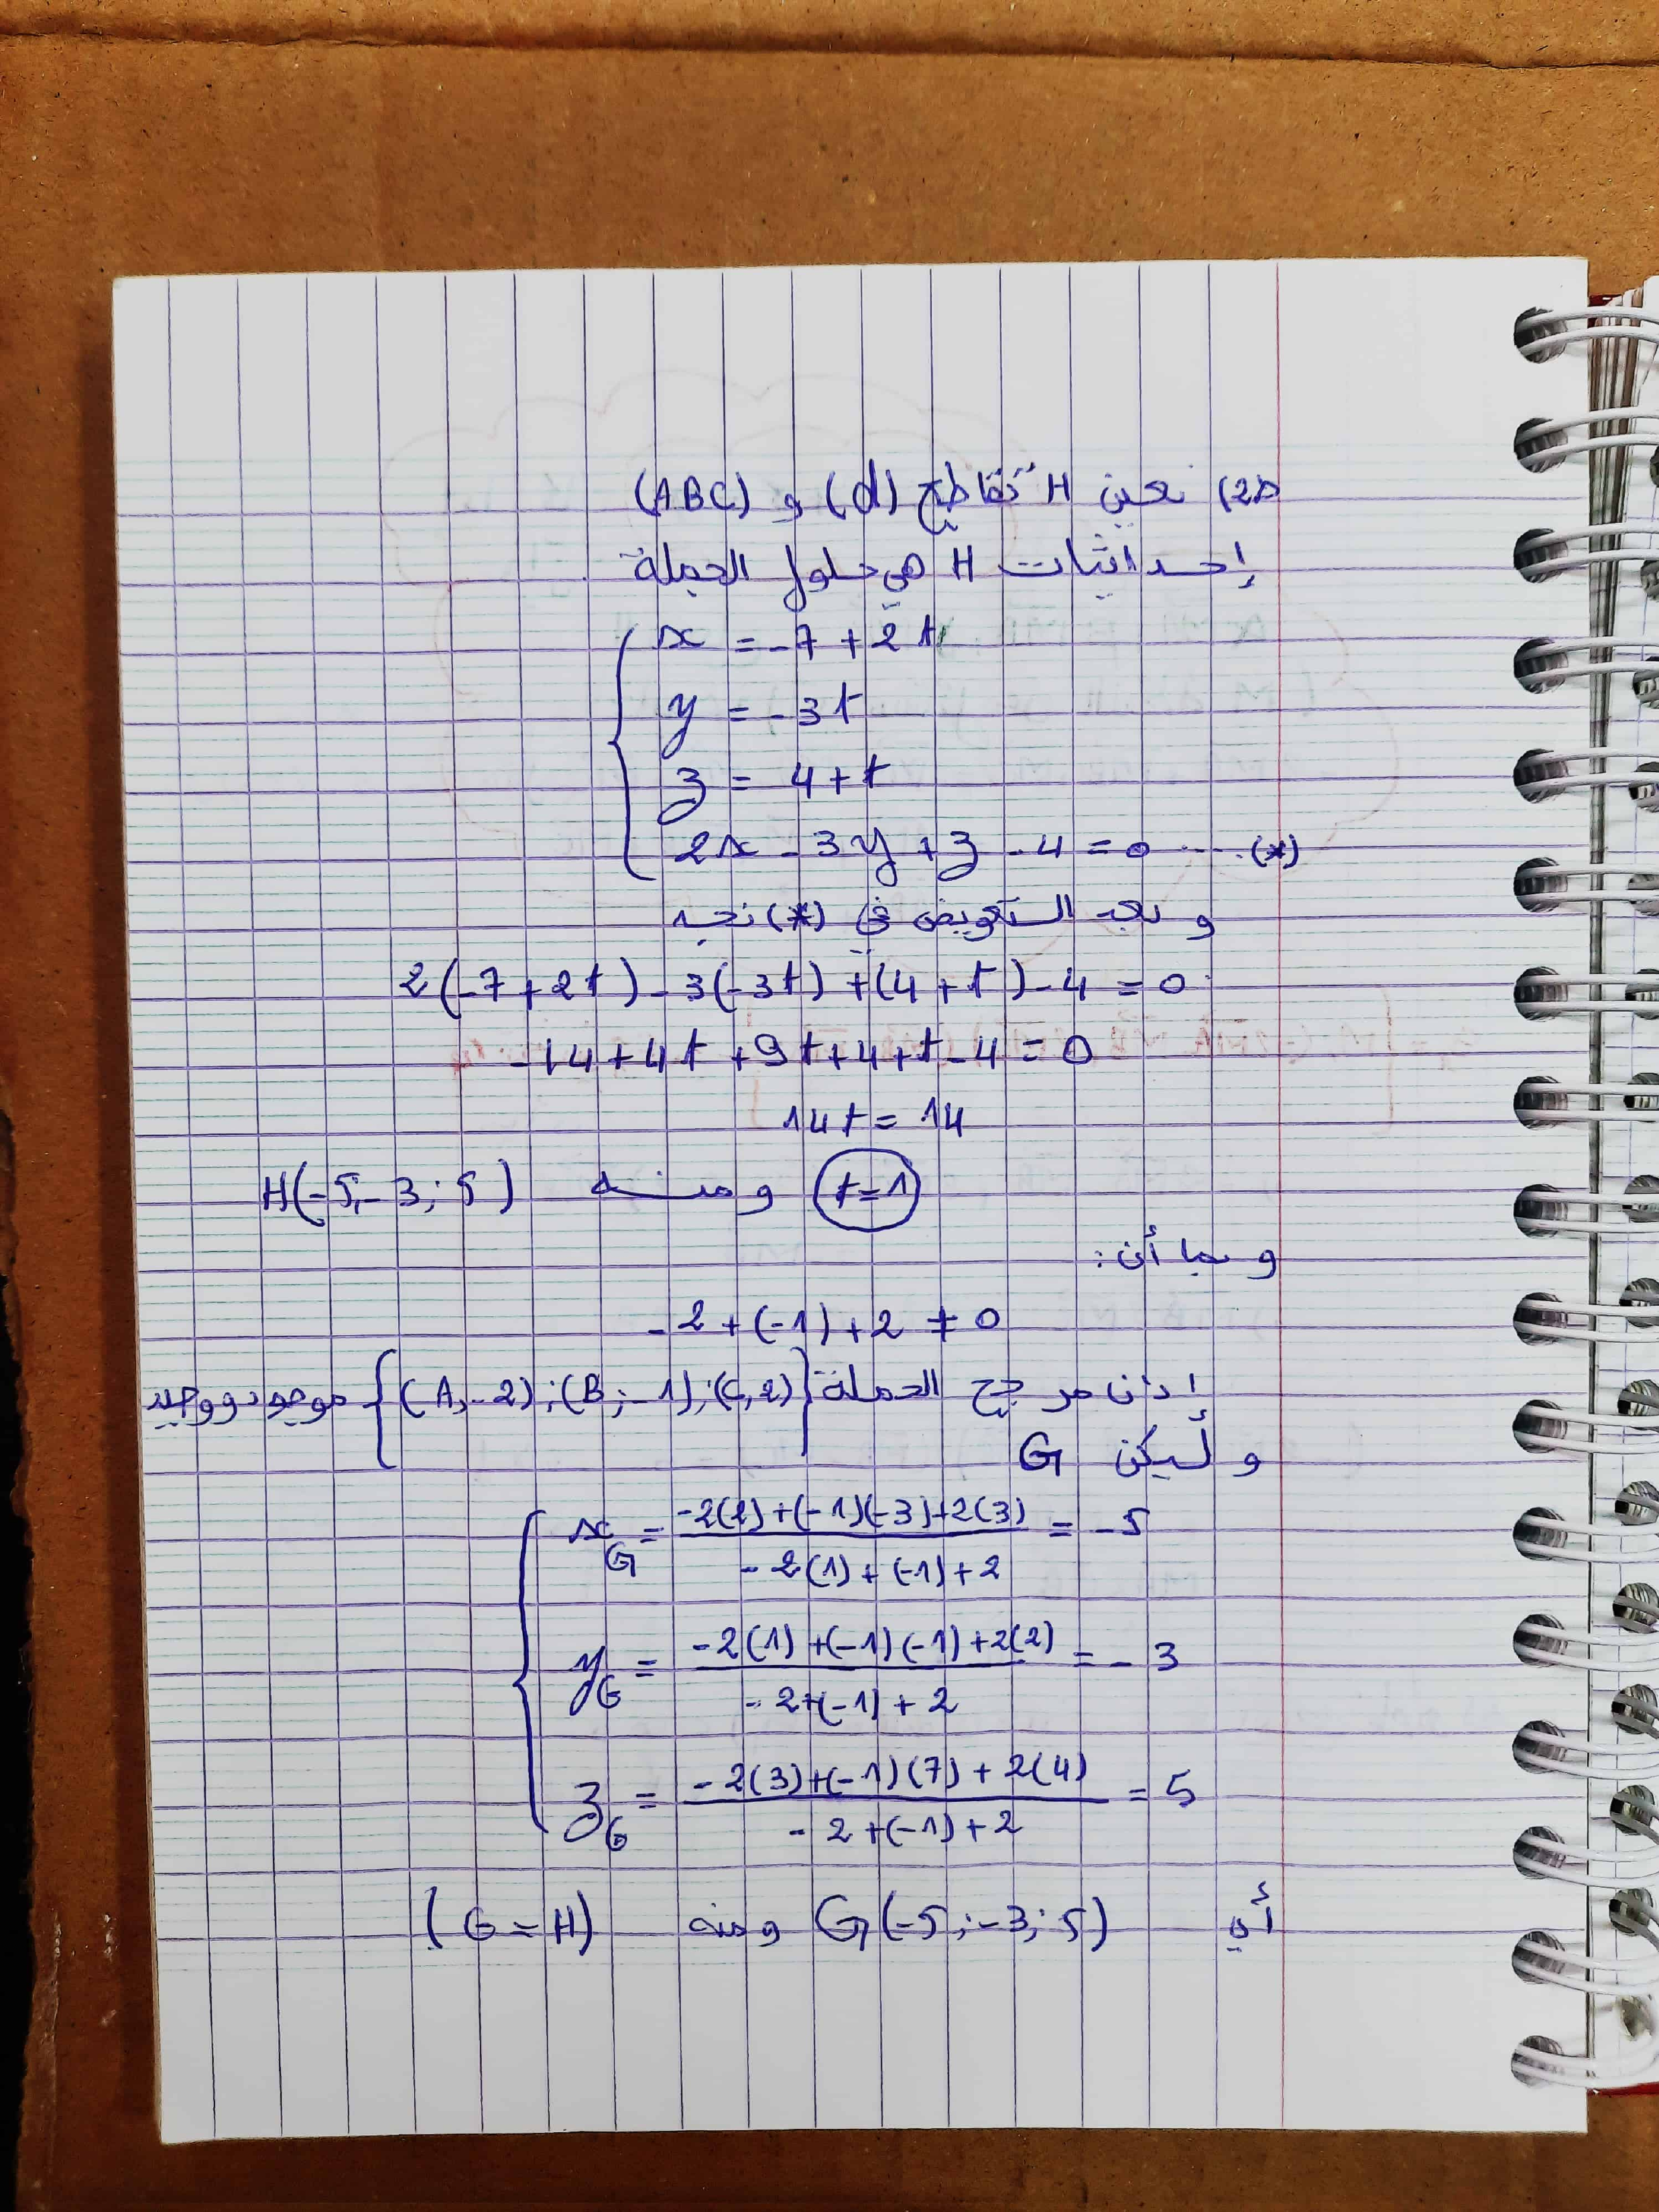 2b) نعين H تقاطع (d) و (ABC)
إحداثيات H هي حلول الجملة
x = -7 + 2t
y = -3t
z = 4 + t
2x - 3y + z - 4 = 0 .... (*)
و بعد التعويض في (*) نجد
2(-7+2t) - 3(-3t) + (4+t) - 4 = 0
-14 + 4t + 9t + 4 + t - 4 = 0
14t = 14
t=1 ومنه H(-5;-3;5)
و بما أن:
-2 + (-1) + 2 ≠ 0
إذن مرجح الجملة {(A,-2);(B;-1);(C,2)} موجود ووحيد
و ليكن G
x_G = (-2(2)+(-1)(-3)+2(3))/(-2(1)+(-1)+2) = -5
y_G = (-2(1)+(-1)(-1)+2(2))/(-2+(-1)+2) = -3
z_G = (-2(3)+(-1)(7)+2(4))/(-2+(-1)+2) = 5
أي G(-5;-3;5) ومنه (G = H)